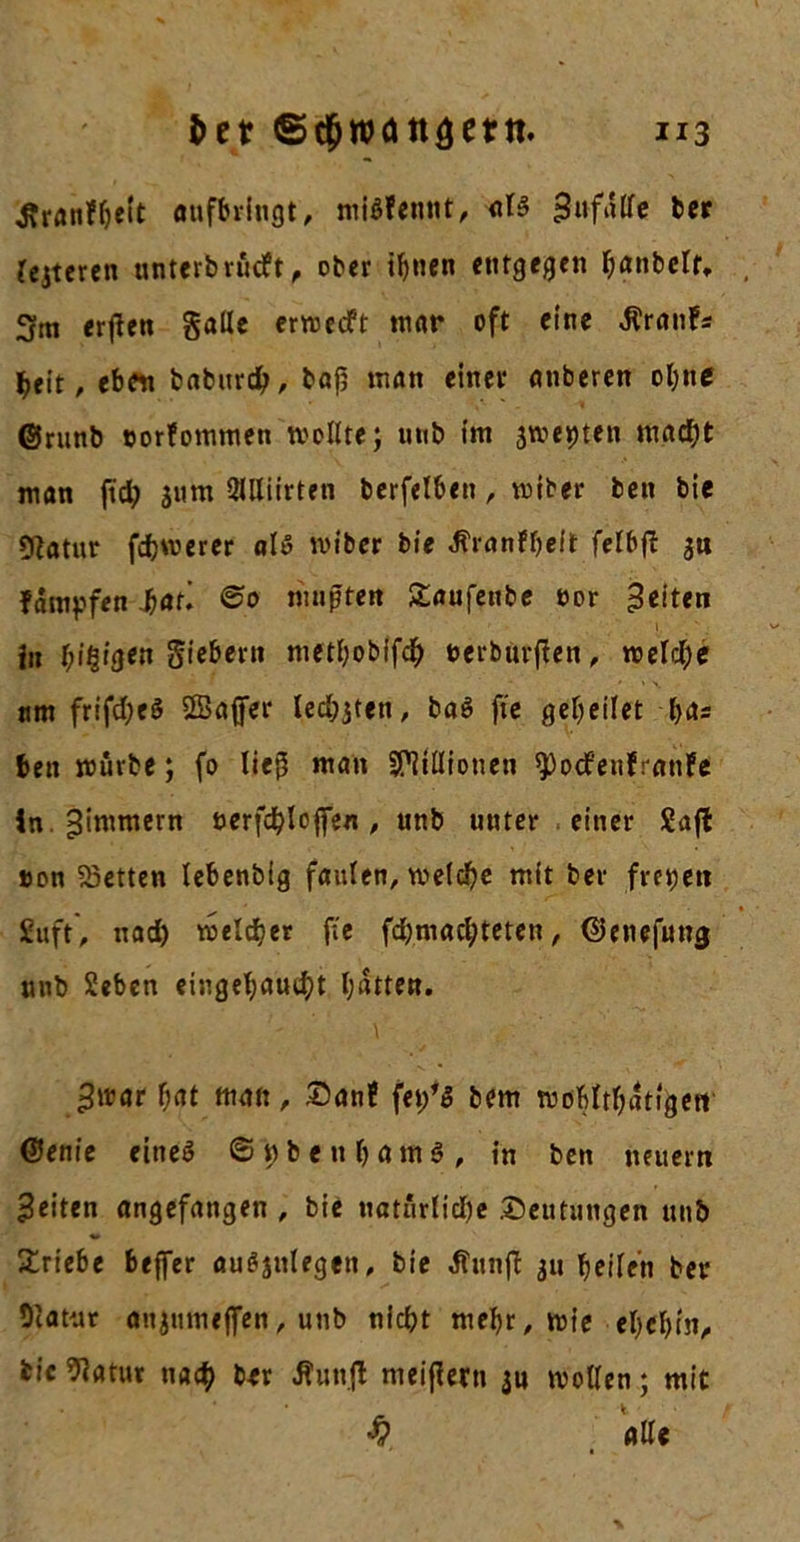 der Schwangern. 113
Krankheit aufbringt, miskennt, als Zufälle der
lezteren unterbrückt, oder ihnen entgegen handelt.
Im ersten Falle erweckt man oft eine Krank-
heit, eben dadurch, daß man einer anderen ohne
Grund vorkommen wollte; und im zweyten macht
man sich zum Alliirten derselben, wider den die
Natur schwerer als wider die Krankheit selbst zu
kämpfen hat. So mußten Tausende vor Zeiten
in hitzigen Fiebern methodisch verdürsten, welche
um frisches Wasser lechzten, das sie geheilet ha-
ben würde; so ließ man Millionen Pockenkranke
in Zimmern verschlossen, und unter einer Last
von Betten lebendig faulen, welche mit der freyen
Luft, nach welcher sie schmachteten, Genesung
und Leben eingehaucht hätten.
Zwar hat man, Dank sey's dem wohlthätigen
Genie eines Sydenhams, in den neuern
Zeiten angefangen, die natürliche Deutungen und
Triebe besser auszulegen, die Kunst zu heilen der
Natur anzumessen, und nicht mehr, wie ehehin,
die Natur nach der Kunst meistern zu wollen; mit
H alle